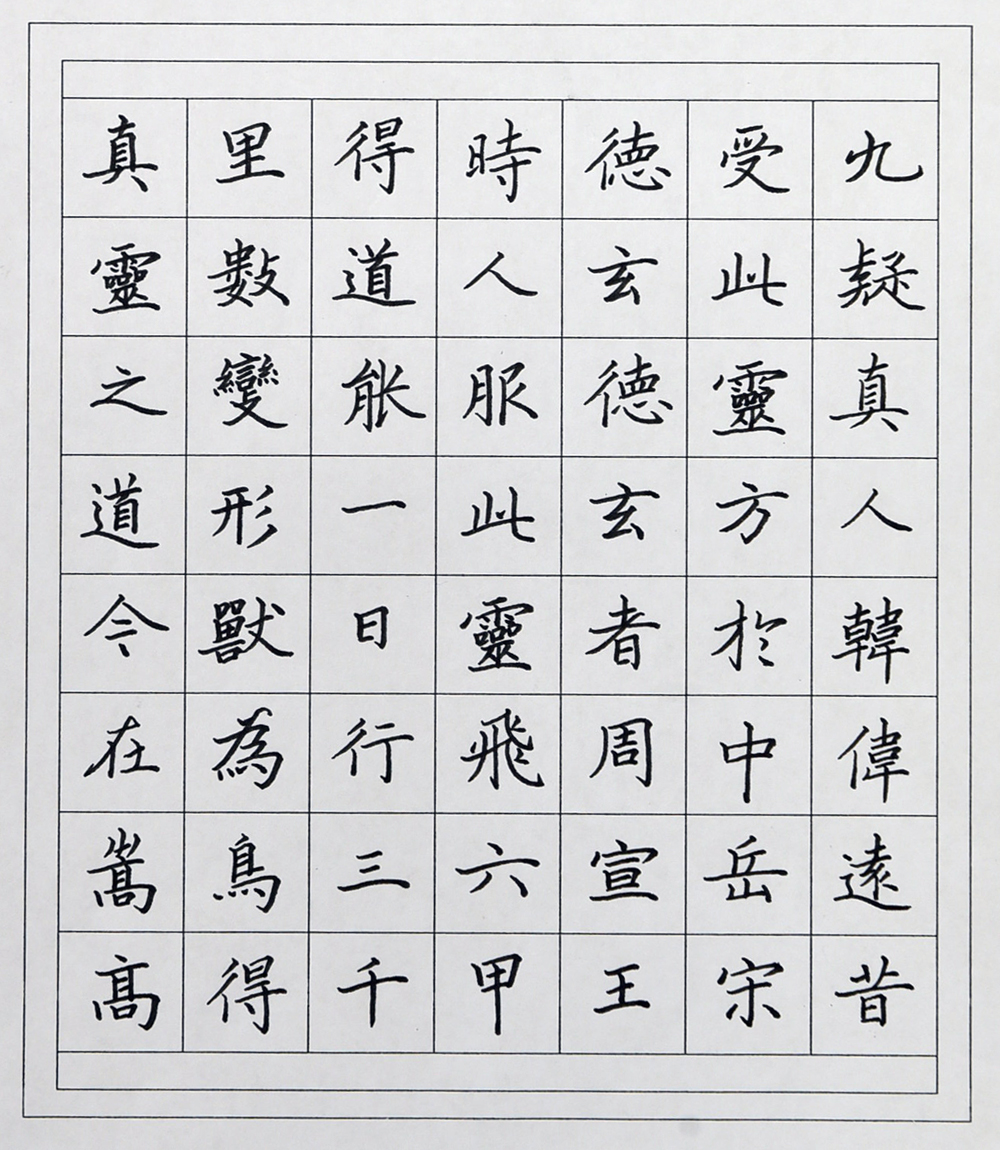 九疑真人韓偉遠昔
受此靈方於中岳宋
德玄德玄者周宣王
時人服此靈飛六甲
得道能一日行三千
里數變形獸為鳥得
真靈之道今在嵩高